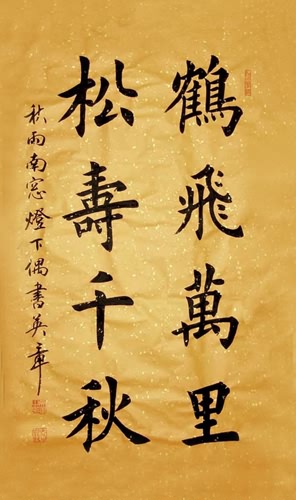 鶴飛萬里
松壽千秋
秋雨南窓燈下偶書英章